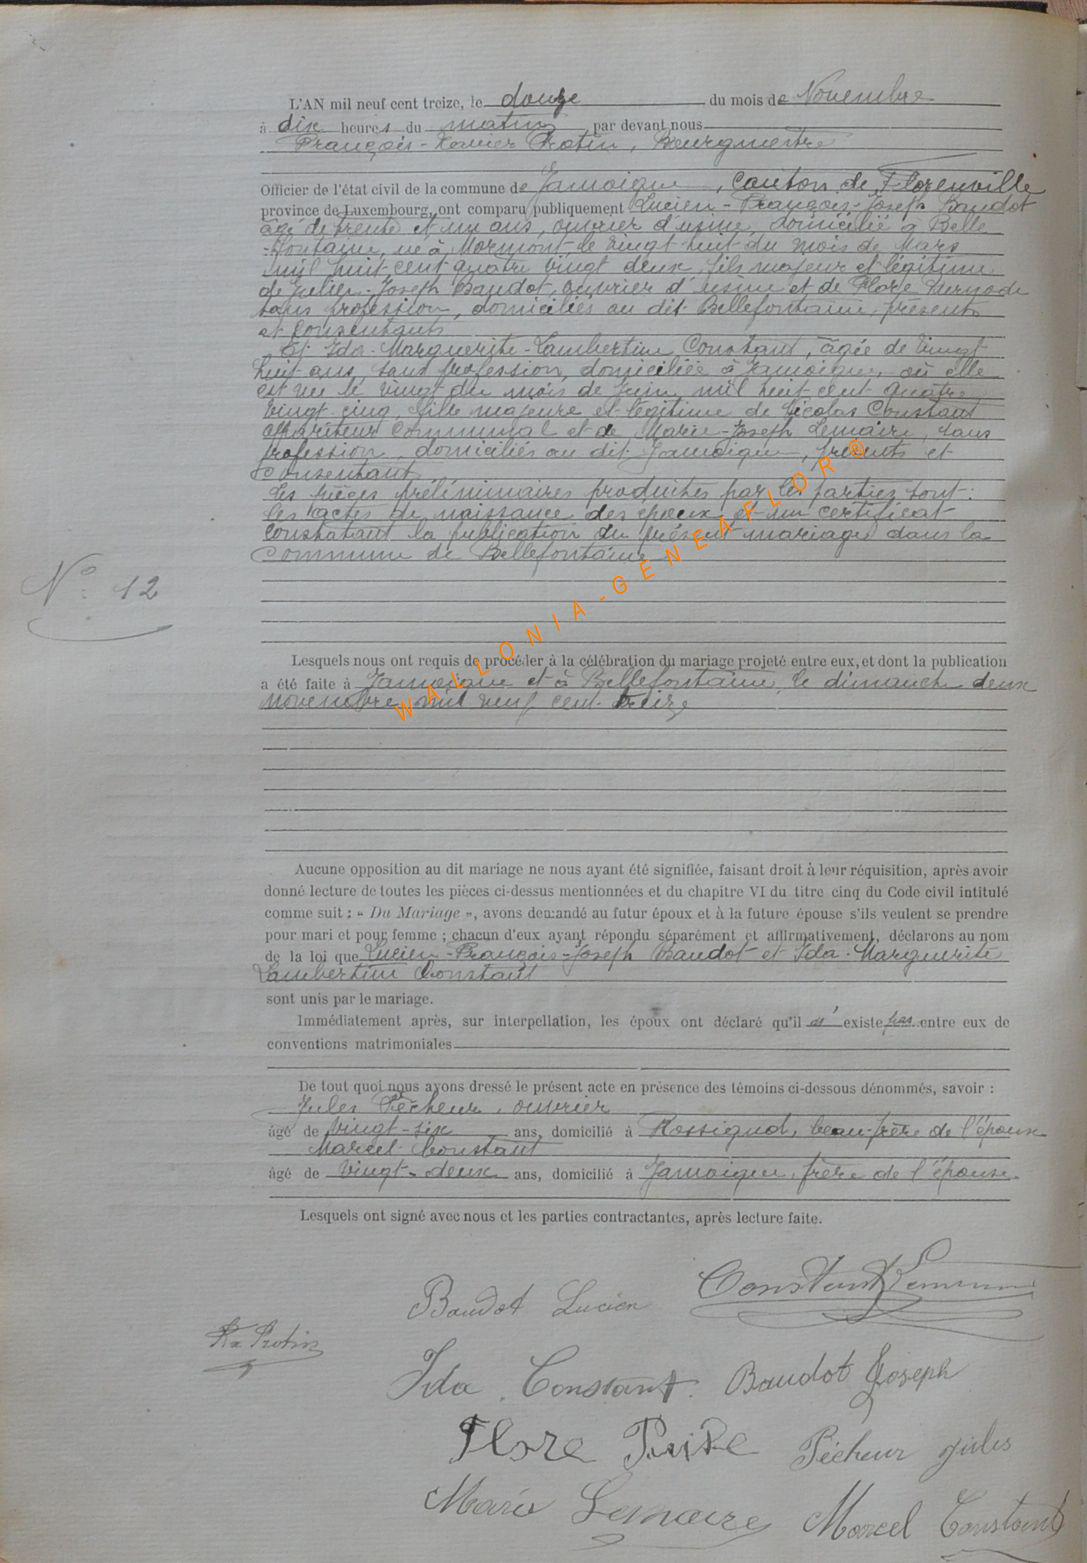 L'AN mil neuf cent treize, le douze du mois de Novembre
à dix heures du matin par devant nous
François-Xavier Protin, Bourgmestre
Officier de l'état civil de la commune de Jamoigne, canton de Florenville
province de Luxembourg, ont comparu publiquement Lucien-François-Joseph Baudot
âgé de trente et un ans, ouvrier d'usine, domicilié à Belle
-fontaine, né à Mormont le vingt huit du mois de Mars
mil huit cent quatre vingt deux, fils majeur et légitime
de Julien-Joseph Baudot, ouvrier d'usine et de Flore
sans profession, domiciliés au dit Bellefontaine, présents
et consentants
Et Ida-Marguerite-Lambertine Constant, âgée de vingt
huit ans, sans profession, domiciliée à Jamoigne, où elle
est née le vingt du mois de Juin mil huit cent quatre
vingt cinq, fille majeure et légitime de Nicolas Constant
communal et de Marie-Joseph Lemaire, sans
profession, domiciliés au dit Jamoigne, présents et
consentants
Les pièces préliminaires produites par les parties sont:
les actes de naissance des époux et un certificat
constatant la publication du présent mariage dans la
commune de Bellefontaine
N° 12
WALLONIA-GENEAFLOR®
Lesquels nous ont requis de procéder à la célébration du mariage projeté entre eux, et dont la publication
a été faite à Jamoigne et à Bellefontaine, le dimanche deux
novembre mil neuf cent treize
Aucune opposition au dit mariage ne nous ayant été signifiée, faisant droit à leur réquisition, après avoir
donné lecture de toutes les pièces ci-dessus mentionnées et du chapitre VI du titre cinq du Code civil intitulé
comme suit : « Du Mariage », avons demandé au futur époux et à la future épouse s'ils veulent se prendre
pour mari et pour femme ; chacun d'eux ayant répondu séparément et affirmativement, déclarons au nom
de la loi que Lucien-François-Joseph Baudot et Ida-Marguerite
Lambertine Constant
sont unis par le mariage.
Immédiatement après, sur interpellation, les époux ont déclaré qu'il n'existe pas entre eux de
conventions matrimoniales
De tout quoi nous avons dressé le présent acte en présence des témoins ci-dessous dénommés, savoir :
Jules Pêcheur, ouvrier
âgé de vingt-six ans, domicilié à Rossignol, beau-frère de l'époux
Marcel Constant
âgé de vingt-deux ans, domicilié à Jamoigne, frère de l'épouse
Lesquels ont signé avec nous et les parties contractantes, après lecture faite.
Baudot Lucien Constant
Fx Protin
Ida Constant. Baudot Joseph
Flore Pêcheur jules
Marie Lemaire Marcel Constant